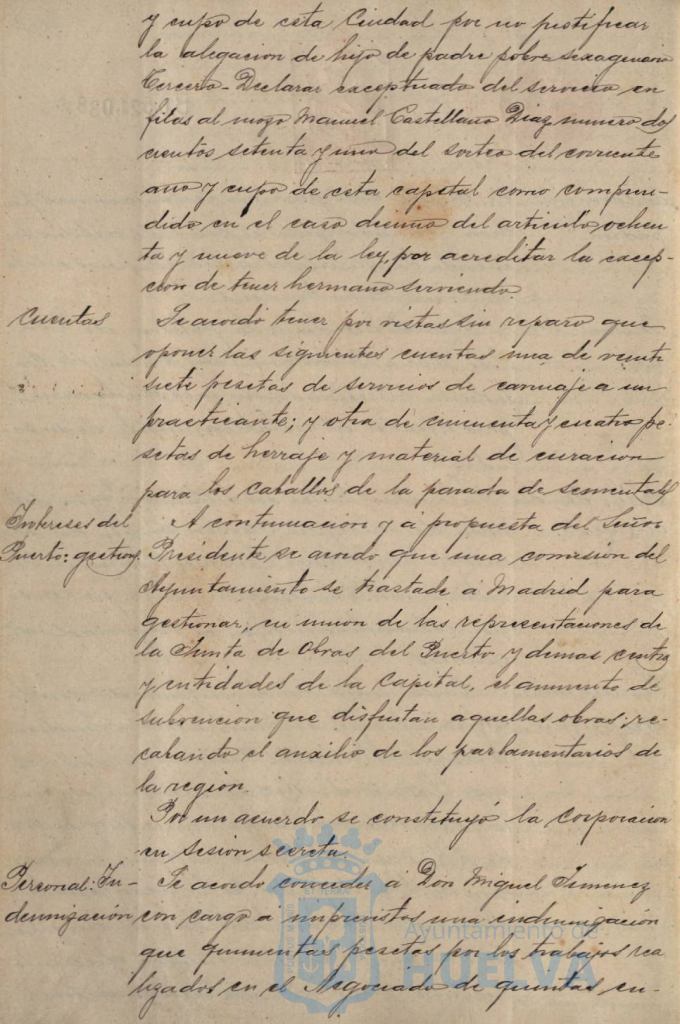 y cupo de esta Ciudad por no justificar
la alegacion de hijo de padre pobre sexagenario
Tercero - Declarar exceptuado del servicio en
filas al mozo Manuel Castellano Diaz, numero dos
cientos setenta y uno del sorteo del corriente
año y cupo de esta capital como compren-
dido en el caso decimo del articulo ochen
ta y nueve de la ley, por acreditar la excep-
cion de tener hermano sirviendo.
Cuentas
Se acordó tener por vistas sin reparo que
oponer las siguientes cuentas una de veinti
siete pesetas de servicios de carruaje a un
practicante; y otra de cincuenta y cuatro pe-
setas de herraje y material de curacion
para los caballos de la parada de sementales
Intereses del
Puerto: gestion.
A continuacion y á propuesta del Señor
Presidente se acordo que una comision del
Ayuntamiento se traslade á Madrid para
gestionar, en union de las representaciones de
la Junta de Obras del Puerto y demas centros
y entidades de la Capital, el aumento de
subvencion que disfrutan aquellas obras, re-
cabando el auxilio de los parlamentarios de
la región.
Por un acuerdo se constituyó la Corporacion
en sesión secreta.
Personal: In-
demnización
Se acordo conceder á Don Miguel Jimenez
con cargo a imprevistos una indemnización
que quinientas pesetas por los trabajos rea
lizados en el Negociado de quintas en-
Ayuntamiento de
HUELVA